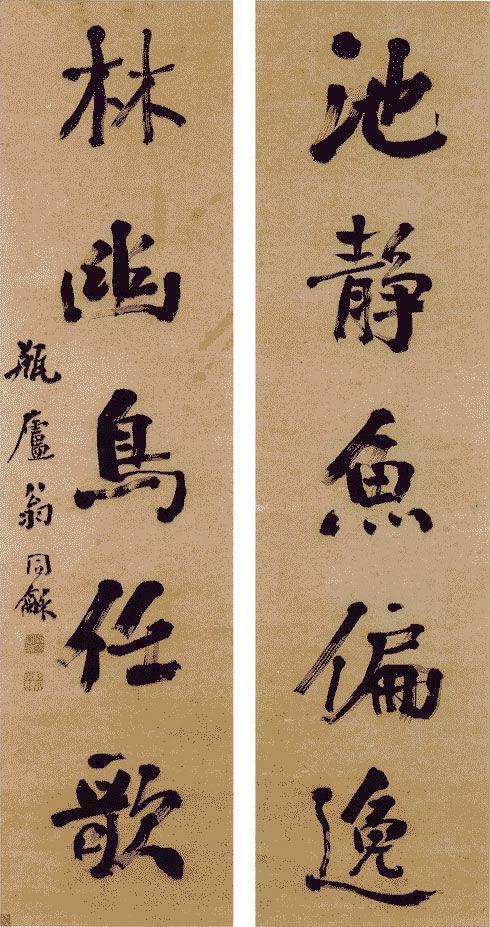 池静魚偏逸
林幽鳥任歌
瓶廬翁同龢